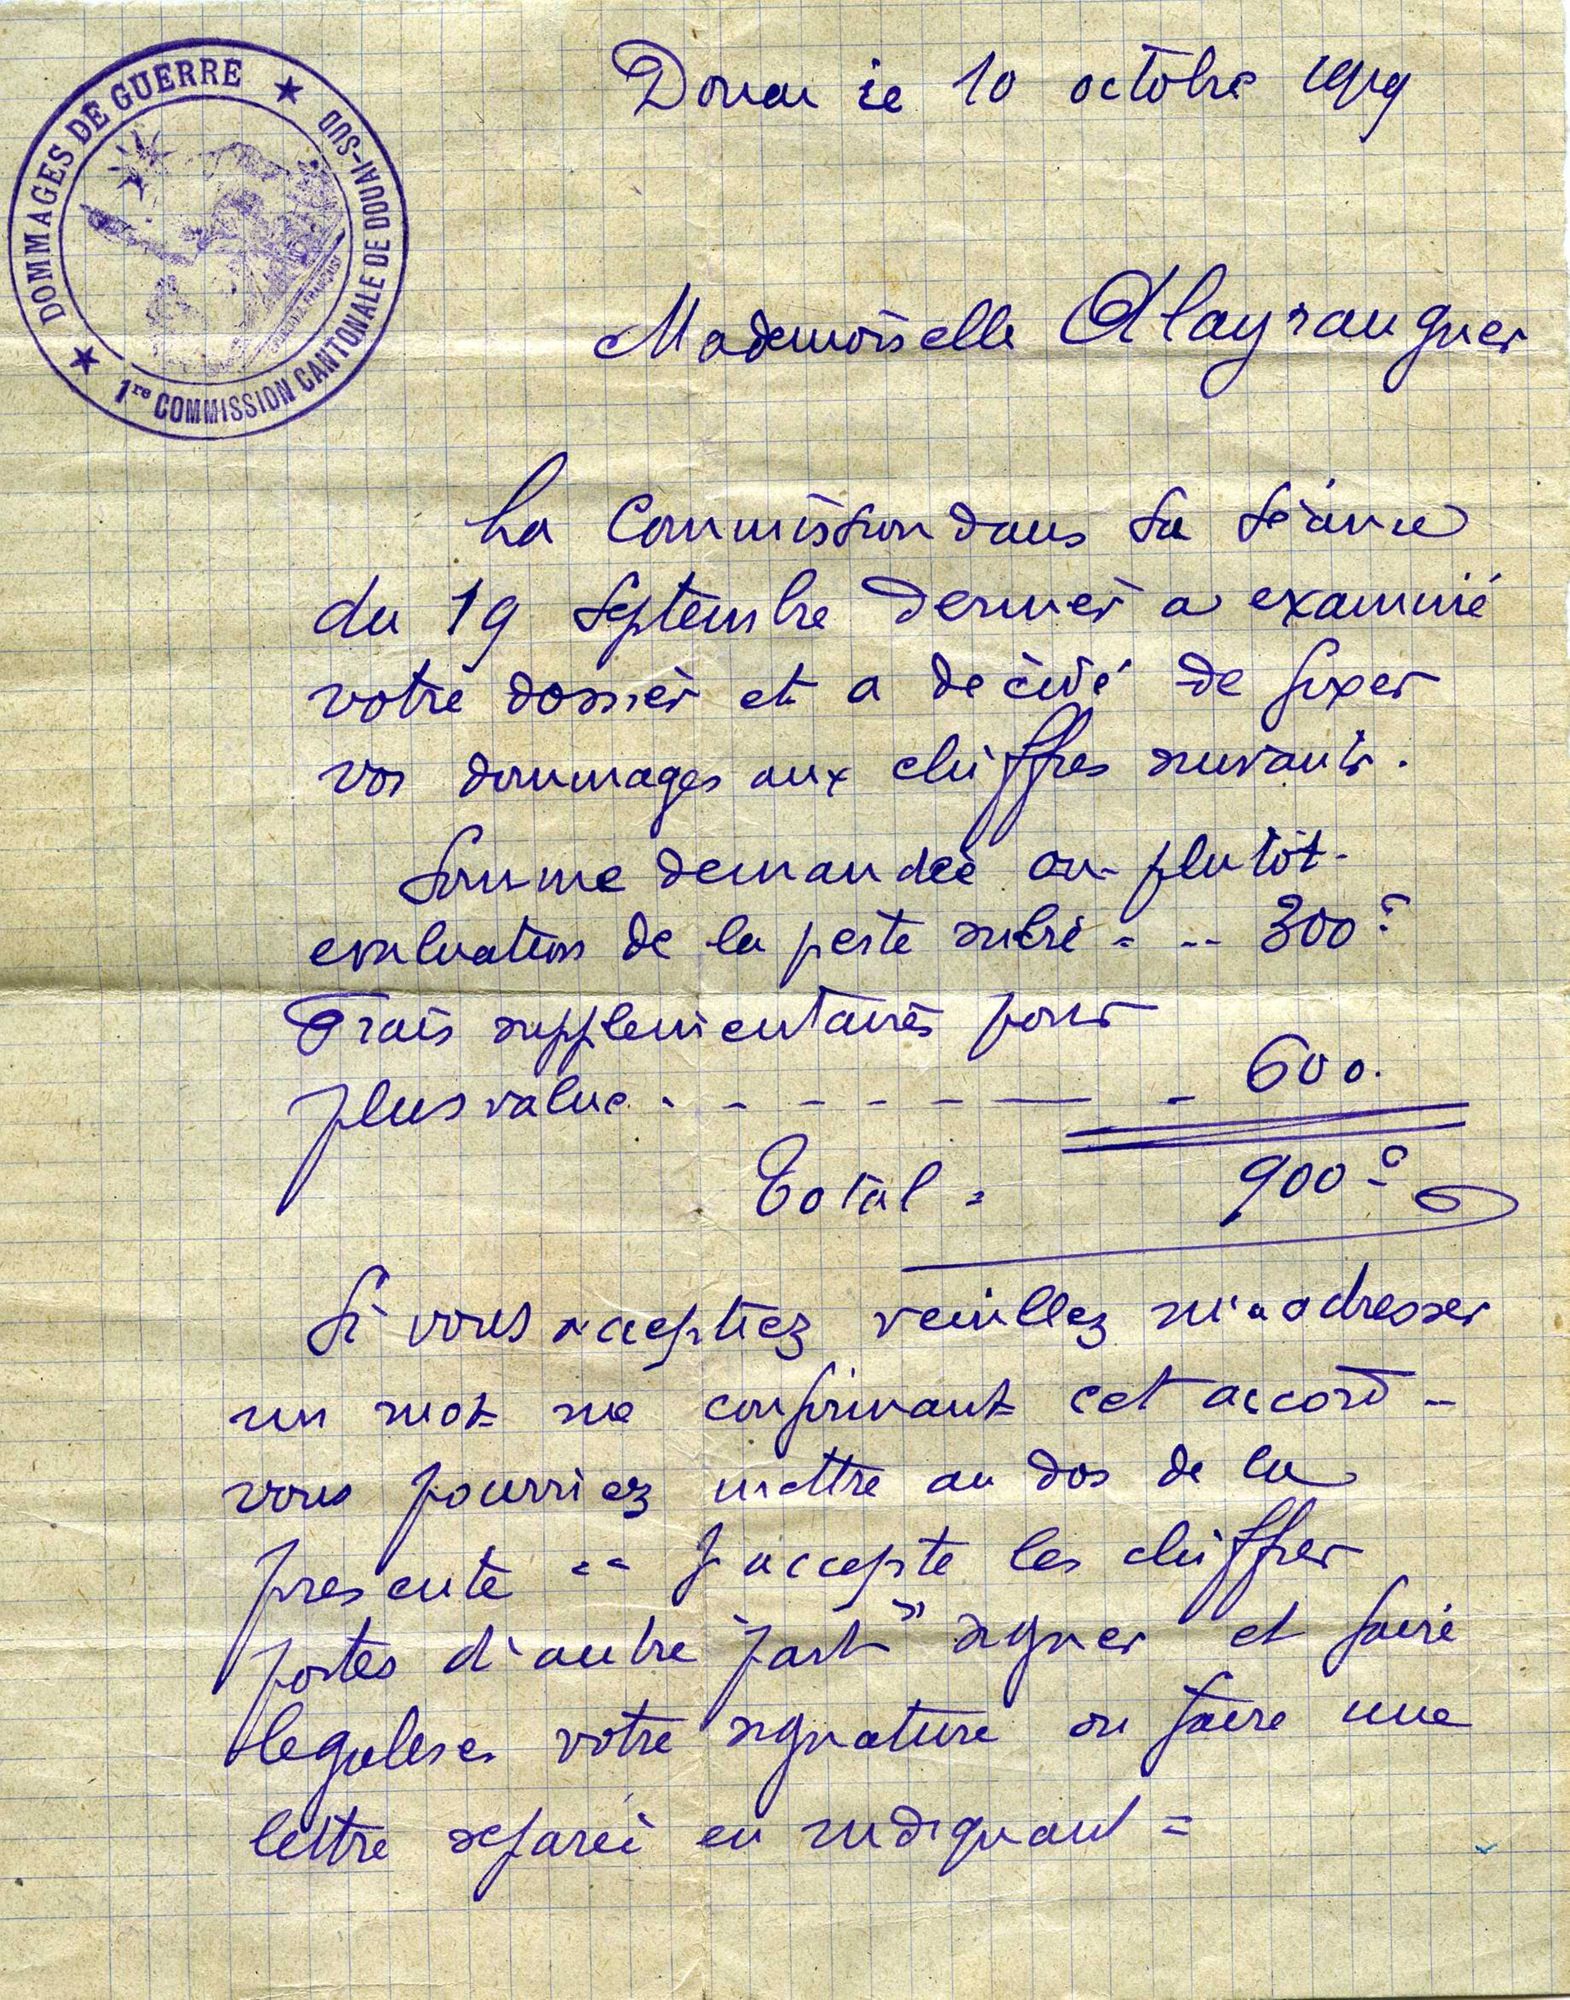 DOMMAGES DE GUERRE
1re COMMISSION CANTONALE DE DOUAI-SUD
Douai le 10 octobre 1919
Mademoiselle
La Commission dans sa séance
du 19 Septembre dernier a examiné
votre dossier et a décidé de fixer
vos dommages aux chiffres suivants.
Somme demandée ou plutôt
evaluation de la perte subie = -- 300
Frais supplementaires pour
plus value. - - - - - - - 600.
Total = 900
Si vous acceptiez veuillez m'adresser
un mot me confirmant cet accord -
vous pourriez mettre au dos de la
presente " J'accepte les chiffres
portes d'autre part" signer et faire
legaliser votre signature ou faire une
lettre separée en indiquant =